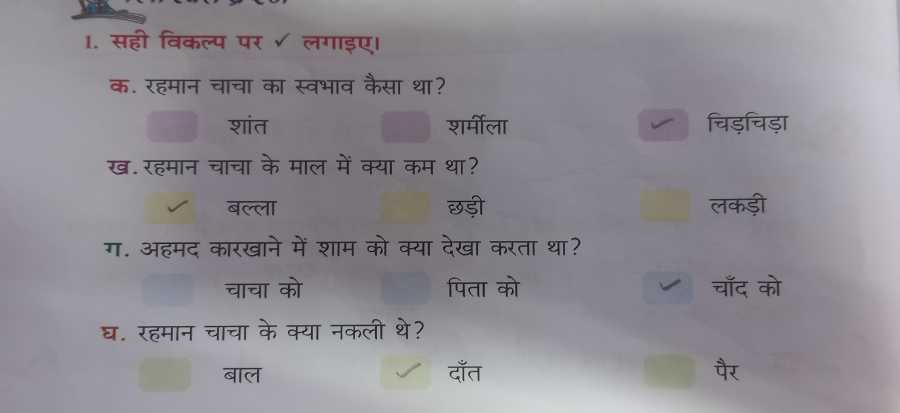 1. सही विकल्प पर ✓ लगाइए।
क. रहमान चाचा का स्वभाव कैसा था?
शांत शर्मीला ✓ चिड़चिड़ा
ख. रहमान चाचा के माल में क्या कम था?
✓ बल्ला छड़ी लकड़ी
ग. अहमद कारखाने में शाम को क्या देखा करता था?
चाचा को पिता को ✓ चाँद को
घ. रहमान चाचा के क्या नकली थे?
बाल ✓ दाँत पैर